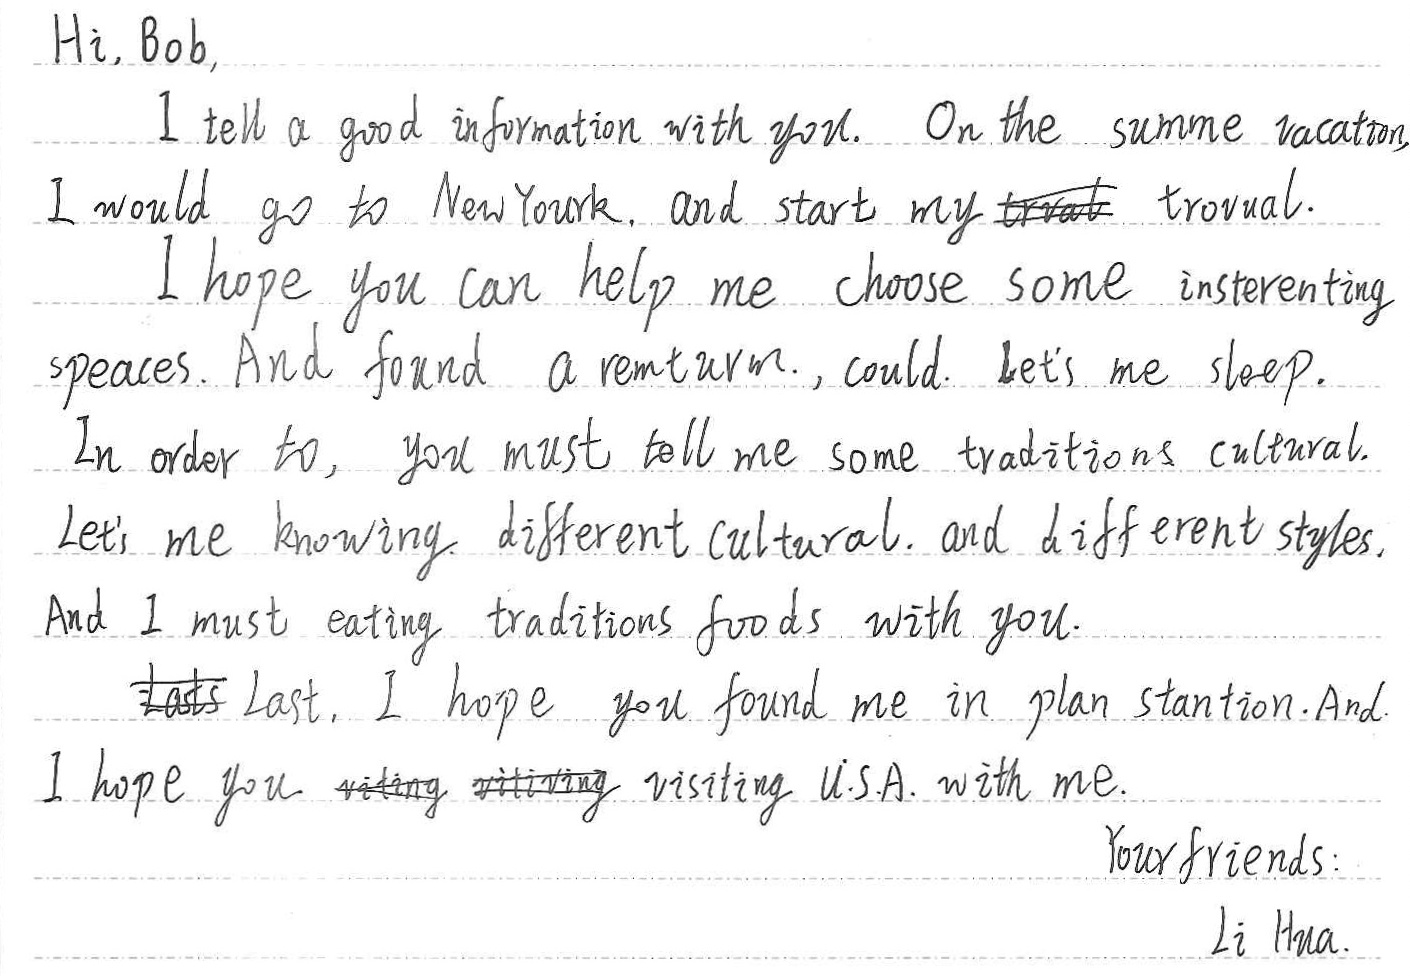 Hi, Bob,
I tell a good information with you. On the summe vacation,
I would go to New Yourk, and start my trovual.
I hope you can help me choose some insterenting
speaces. And found a remturm., could. Let's me sleep.
In order to, you must tell me some traditions cultural.
Let's me knowing. different cultural. and different styles.
And I must eating traditions foods with you.
Last, I hope you found me in plan stantion. And.
I hope you visiting U.S.A. with me.
Your friends:
Li Hua.